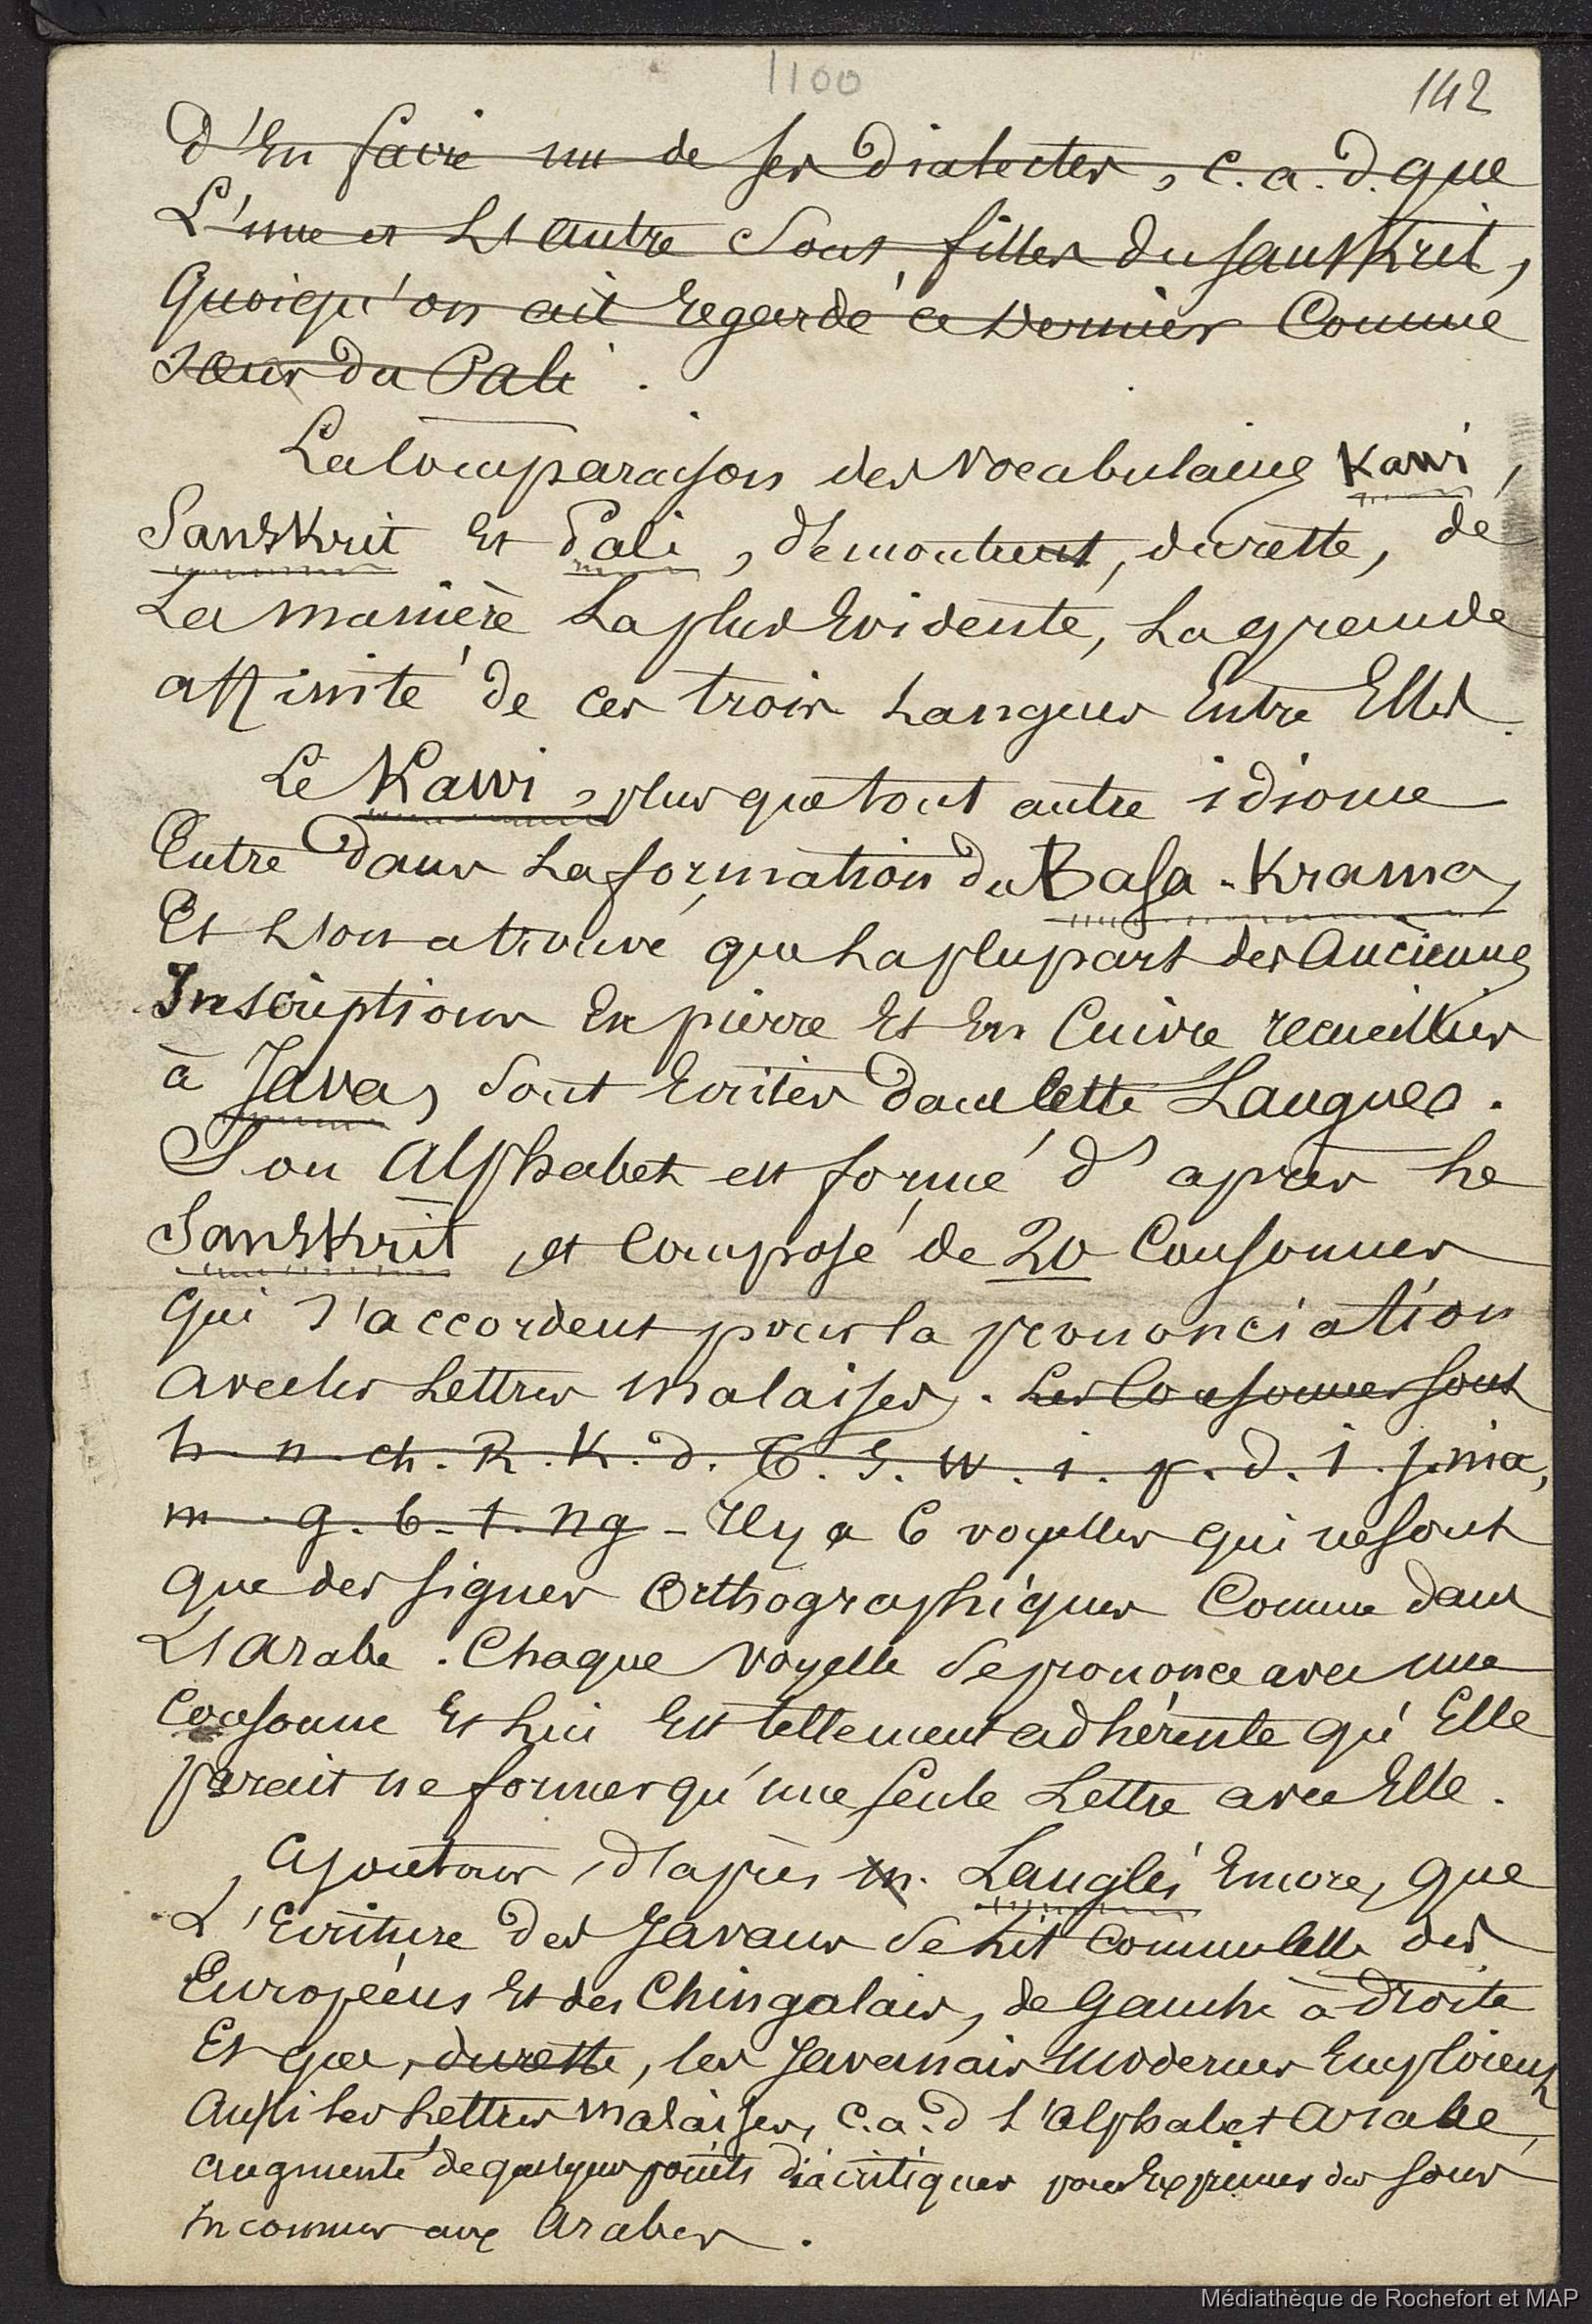 1100
142
d'En faire un de ses Dialectes, c.a.d. que
L'une et L'autre Sont filles du Sanskrit,
Quoiqu'on ait Regardé ce Dernier Comme
sœur du Pali.
La Comparaison des Vocabulaires Kawi,
Sanskrit Et Pali, démontrent, du reste, de
La manière La plus Evidente, La grande
affinité de ces trois Langues Entre Elles.
Le Kawi, plus que tout autre idiome
Entre Dans La formation du Basa-Krama,
Et L'on a trouvé que La plupart des Anciennes
Inscriptions En pierre Et En Cuivre recueillies
à Java, Sont Ecrites Dans Cette Langues.
Son Alphabet est formé d'après Le
Sanskrit, et Composé de 20 Consonnes
Qui s'accordent pour la prononciation
avec les Lettres Malaises. Les Consonnes sont
h. n. ch. R. K. d. T. S. W. i. p. d. i. j. nia,
m. g. b. t. ng - Il y a 6 voyelles qui ne sont
que des signes Orthographiques Comme dans
L'Arabe. Chaque Voyelle Se prononce avec une
Consonne Et Lui Est tellement adhérente qu'Elle
parait ne former qu'une seule Lettre avec Elle.
Ajoutons, d'après M. Langlès Encore, que
L'Ecriture Des Javans Se Lit Comme Celle des
Européens Et des Chingalais, de Gauche à Droite
Et que, du reste, les Javanais Modernes Emploient
Aussi les Lettres Malaises, c.a.d l'Alphabet Arabe,
augmenté de quelques points diacritiques pour Exprimer des sons
Inconnus aux Arabes.
Médiathèque de Rochefort et MAP